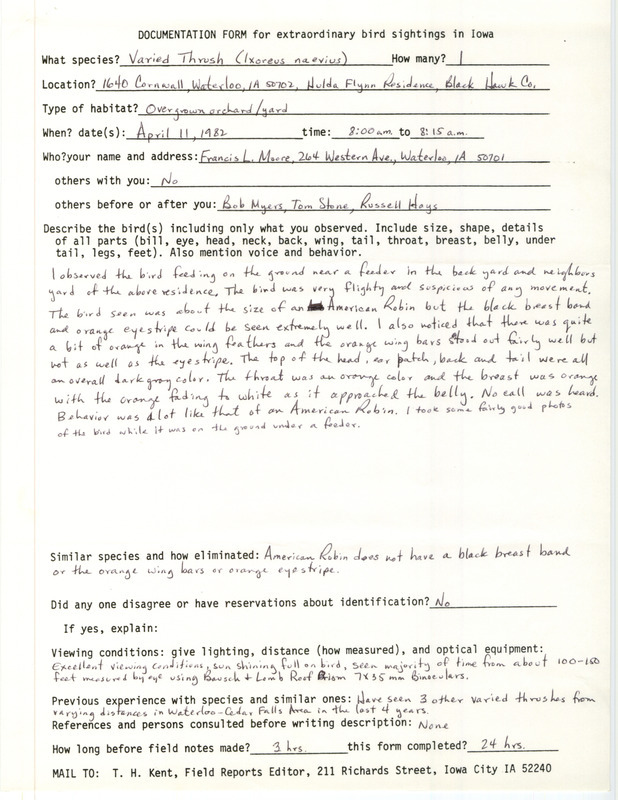 DOCUMENTATION FORM for extraordinary bird sightings in Iowa
What species? Varied Thrush (Ixoreus naevius) How many? 1
Location? 1640 Cornwall, Waterloo, IA 50702, Hulda Flynn Residence, Black Hawk Co.
Type of habitat? Overgrown orchard/yard
When? date(s): April 11, 1982 time: 8:00 am. to 8:15 a.m.
Who? your name and address: Francis L. Moore, 264 Western Ave., Waterloo, IA 50701
others with you: No
others before or after you: Bob Myers, Tom Stone, Russell Hays
Describe the bird(s) including only what you observed. Include size, shape, details
of all parts (bill, eye, head, neck, back, wing, tail, throat, breast, belly, under
tail, legs, feet). Also mention voice and behavior.
I observed the bird feeding on the ground near a feeder in the back yard and neighbors
yard of the above residence. The bird was very flighty and suspicious of any movement.
The bird seen was about the size of an American Robin but the black breast band
and orange eyestripe could be seen extremely well. I also noticed that there was quite
a bit of orange in the wing feathers and the orange wing bars stood out fairly well but
not as well as the eyestripe. The top of the head, ear patch, back and tail were all
an overall dark gray color. The throat was an orange color and the breast was orange
with the orange fading to white as it approached the belly. No call was heard.
Behavior was alot like that of an American Robin. I took some fairly good photos
of the bird while it was on the ground under a feeder.
Similar species and how eliminated: American Robin does not have a black breast band
or the orange wing bars or orange eyestripe.
Did any one disagree or have reservations about identification? No
If yes, explain:
Viewing conditions: give lighting, distance (how measured), and optical equipment:
Excellent viewing conditions, sun shining full on bird, seen majority of time from about 100-150
feet measured by eye using Bausch & Lomb Roof Prism 7X35 mm Binoculars.
Previous experience with species and similar ones: Have seen 3 other varied thrushes from
varying distances in Waterloo-Cedar Falls Area in the last 4 years.
References and persons consulted before writing description: None
How long before field notes made? 3 hrs. this form completed? 24 hrs.
MAIL TO: T. H. Kent, Field Reports Editor, 211 Richards Street, Iowa City IA 52240